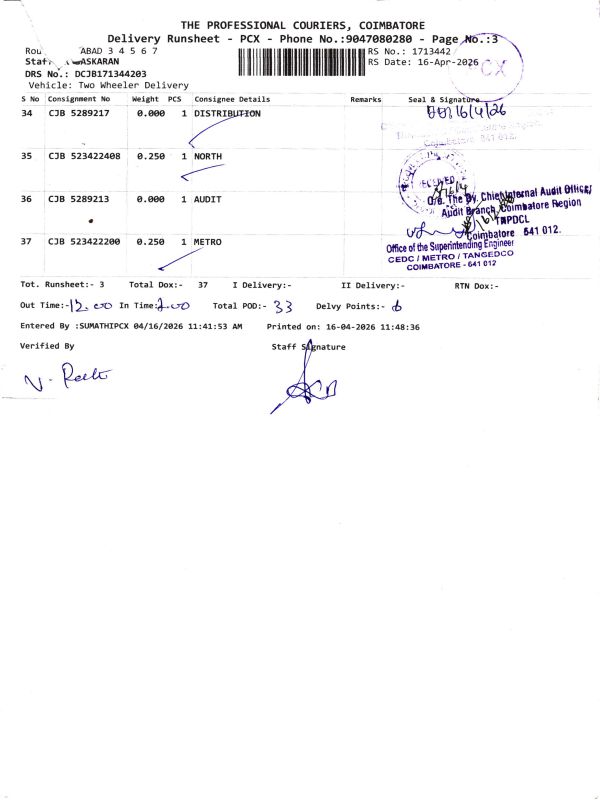 THE PROFESSIONAL COURIERS, COIMBATORE
Delivery Runsheet - PCX - Phone No.:9047080280 - Page No.:3
ABAD 3 4 5 6 7
RS No.: 1713442
ASKARAN
RS Date: 16-Apr-2026
CX
DRS No.: DCJB171344203
Vehicle: Two Wheeler Delivery
S No Consignment No Weight PCS Consignee Details Remarks Seal & Signature
34 CJB 5289217 0.000 1 DISTRIBUTION
16/4/26
Coimbatore 641 012.
35 CJB 523422408 0.250 1 NORTH
RECEIVED
36 CJB 5289213 0.000 1 AUDIT
O/o. The Dy. Chief Internal Audit Officer/
Audit Branch, Coimbatore Region
TNPDCL
Coimbatore 641 012.
37 CJB 523422200 0.250 1 METRO
Office of the Superintending Engineer
CEDC / METRO / TANGEDCO
COIMBATORE - 641 012
Tot. Runsheet:- 3 Total Dox:- 37 I Delivery:- II Delivery:- RTN Dox:-
Out Time:- 12.00 In Time: 2.00 Total POD:- 33 Delvy Points:- 6
Entered By :SUMATHIPCX 04/16/2026 11:41:53 AM Printed on: 16-04-2026 11:48:36
Verified By Staff Signature